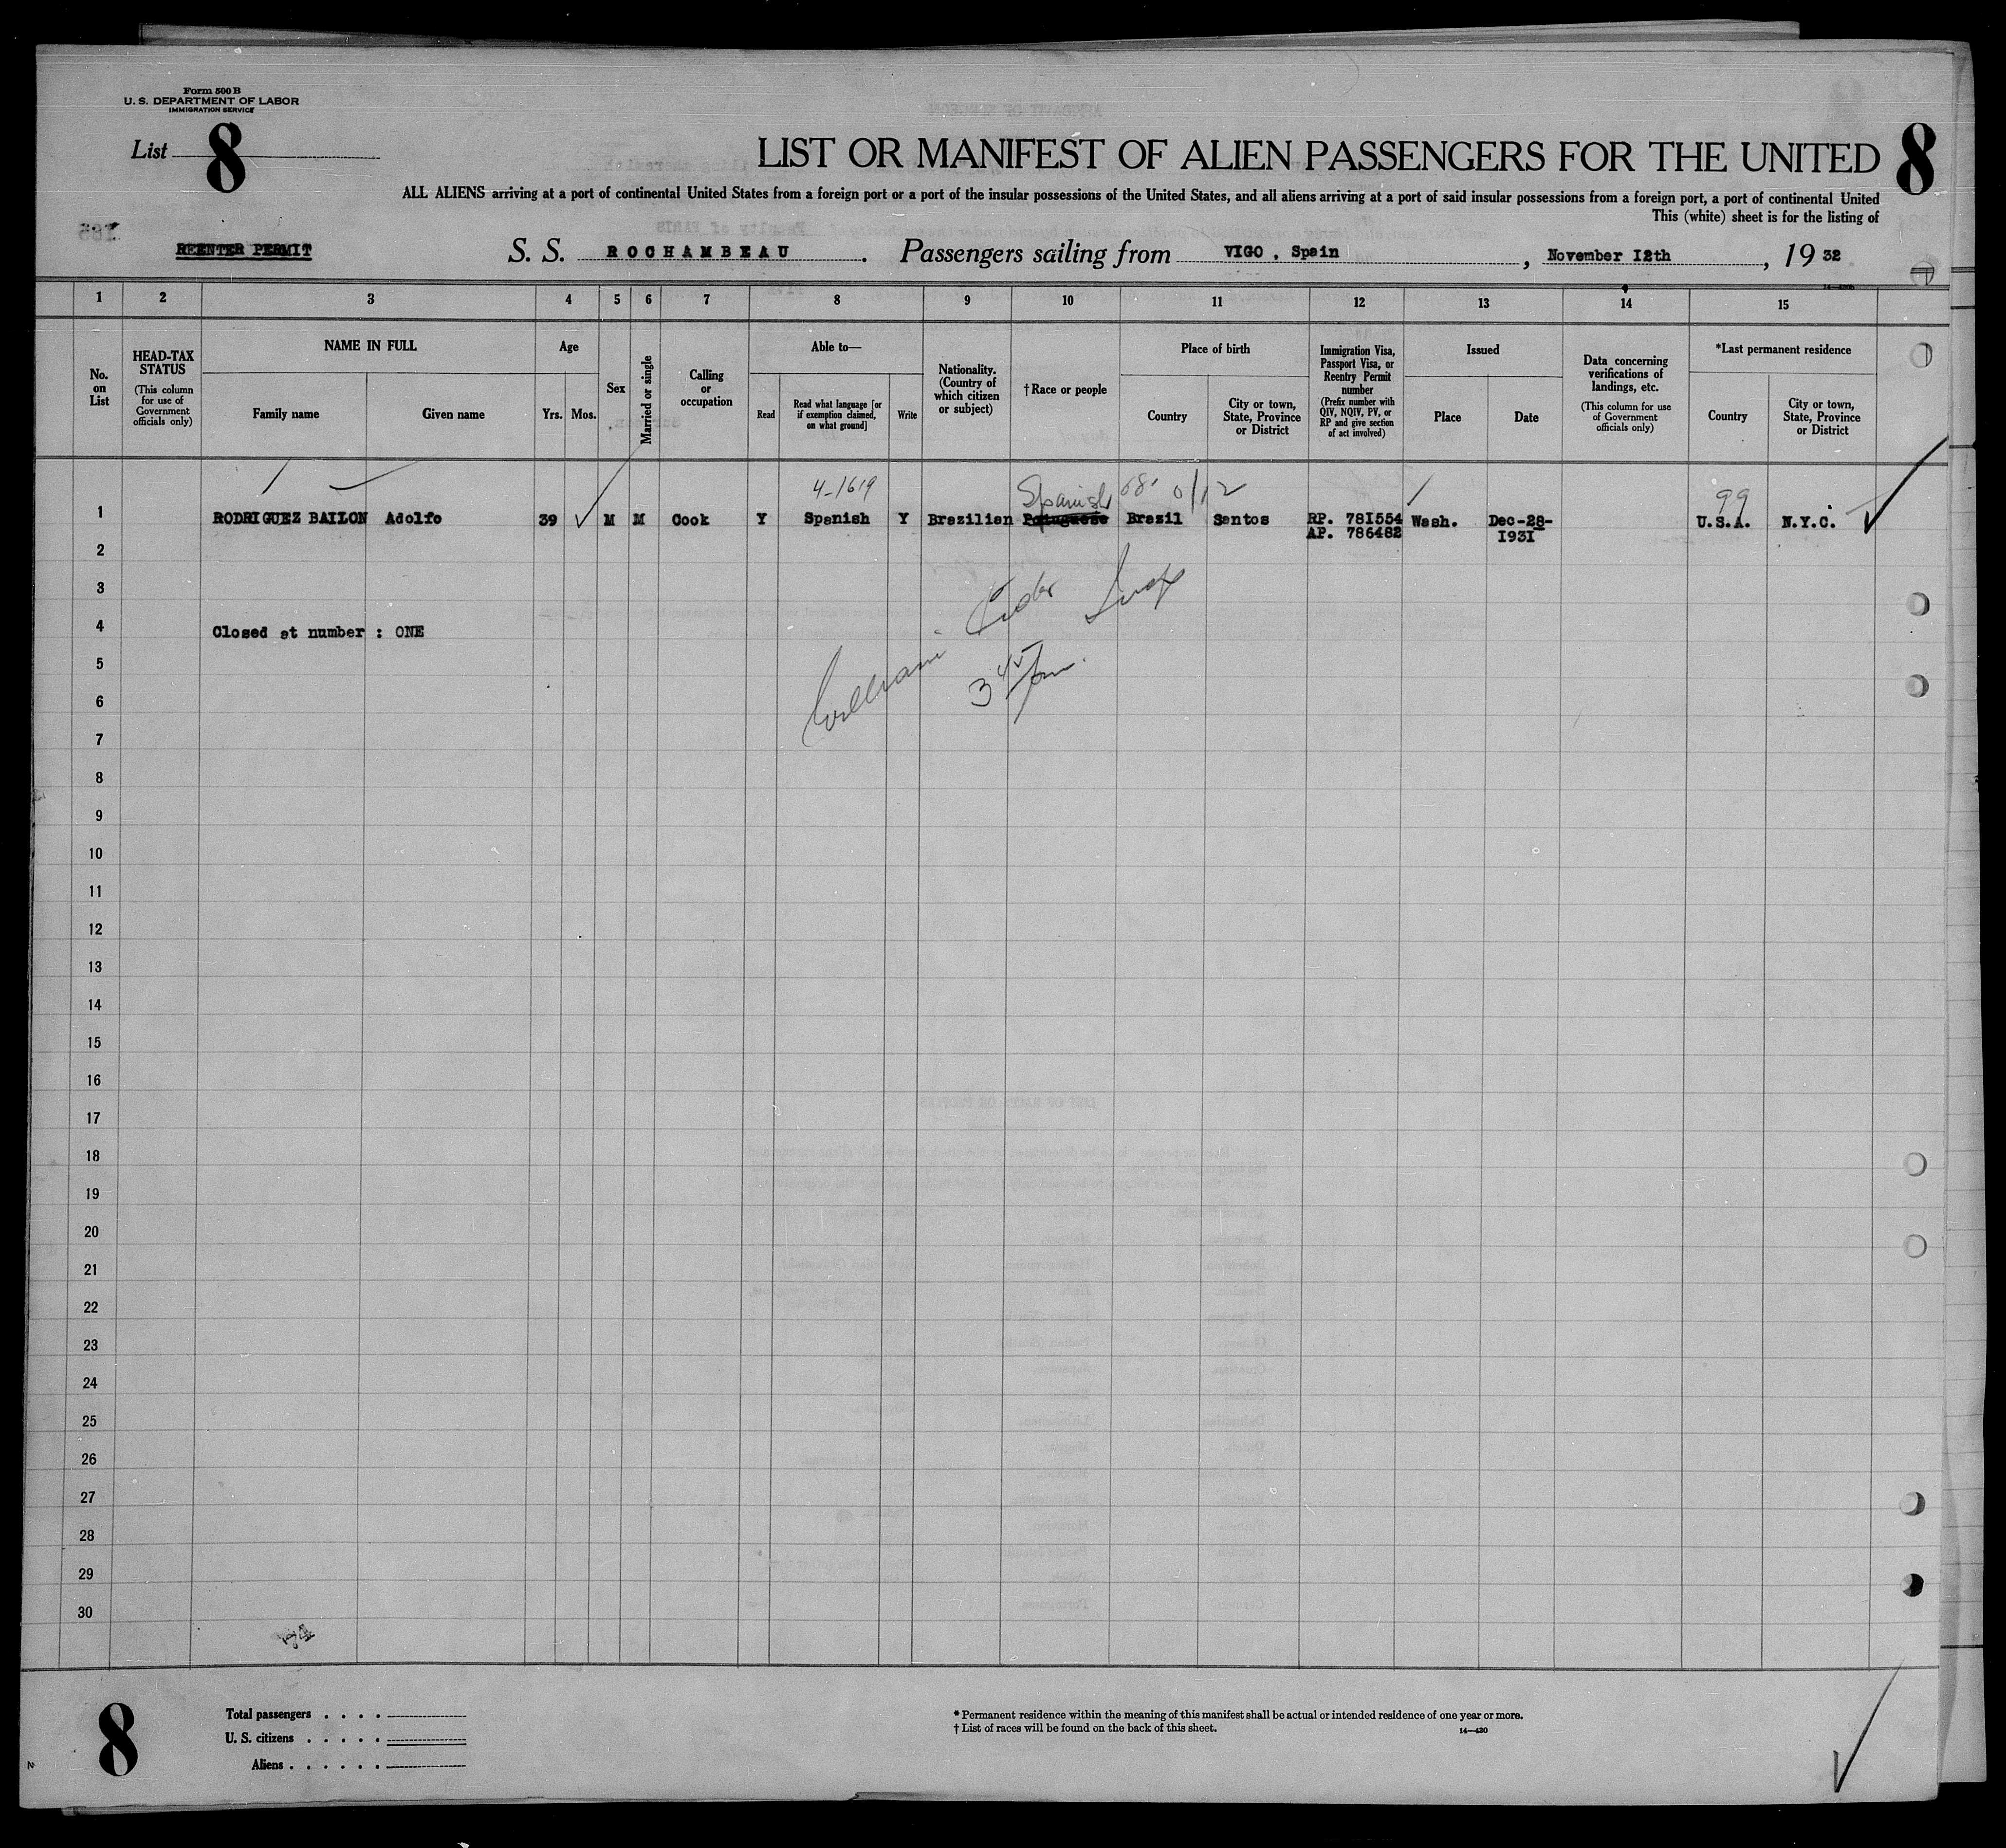 Form 500 B
U. S. DEPARTMENT OF LABOR
IMMIGRATION SERVICE
List 8
LIST OR MANIFEST OF ALIEN PASSENGERS FOR THE UNITED
8
ALL ALIENS arriving at a port of continental United States from a foreign port or a port of the insular possessions of the United States, and all aliens arriving at a port of said insular possessions from a foreign port, a port of continental United
This (white) sheet is for the listing of
REENTER PERMIT
S. S. ROCHAMBEAU. Passengers sailing from VIGO . Spain, November 12th, 19 32
1 2 3 4 5 6 7 8 9 10 11 12 13 14 15
No. on List
HEAD-TAX STATUS
(This column for use of Government officials only)
NAME IN FULL
Family name
Given name
Age
Yrs. Mos.
Sex
Married or single
Calling or occupation
Able to—
Read
Read what language [or if exemption claimed, on what ground]
Write
Nationality. (Country of which citizen or subject)
† Race or people
Place of birth
Country
City or town, State, Province or District
Immigration Visa, Passport Visa, or Reentry Permit number
(Prefix number with QIV, NQIV, PV, or RP and give section of act involved)
Issued
Place
Date
Data concerning verifications of landings, etc.
(This column for use of Government officials only)
*Last permanent residence
Country
City or town, State, Province or District
4-1619 Spanish 99
1 RODRIGUEZ BAILON Adolfo 39 M M Cook Y Spanish Y Brazilian Potuguese Brazil Santos RP. 781554 Wash. Dec-28- U.S.A. N.Y.C.
AP. 786482 1931
2
3
4 Closed at number : ONE
5
6
7
8
9
10
11
12
13
14
15
16
17
18
19
20
21
22
23
24
25
26
27
28
29
30
8
Total passengers . . . .
U. S. citizens . . . . .
Aliens . . . . . .
* Permanent residence within the meaning of this manifest shall be actual or intended residence of one year or more.
† List of races will be found on the back of this sheet.
14—430